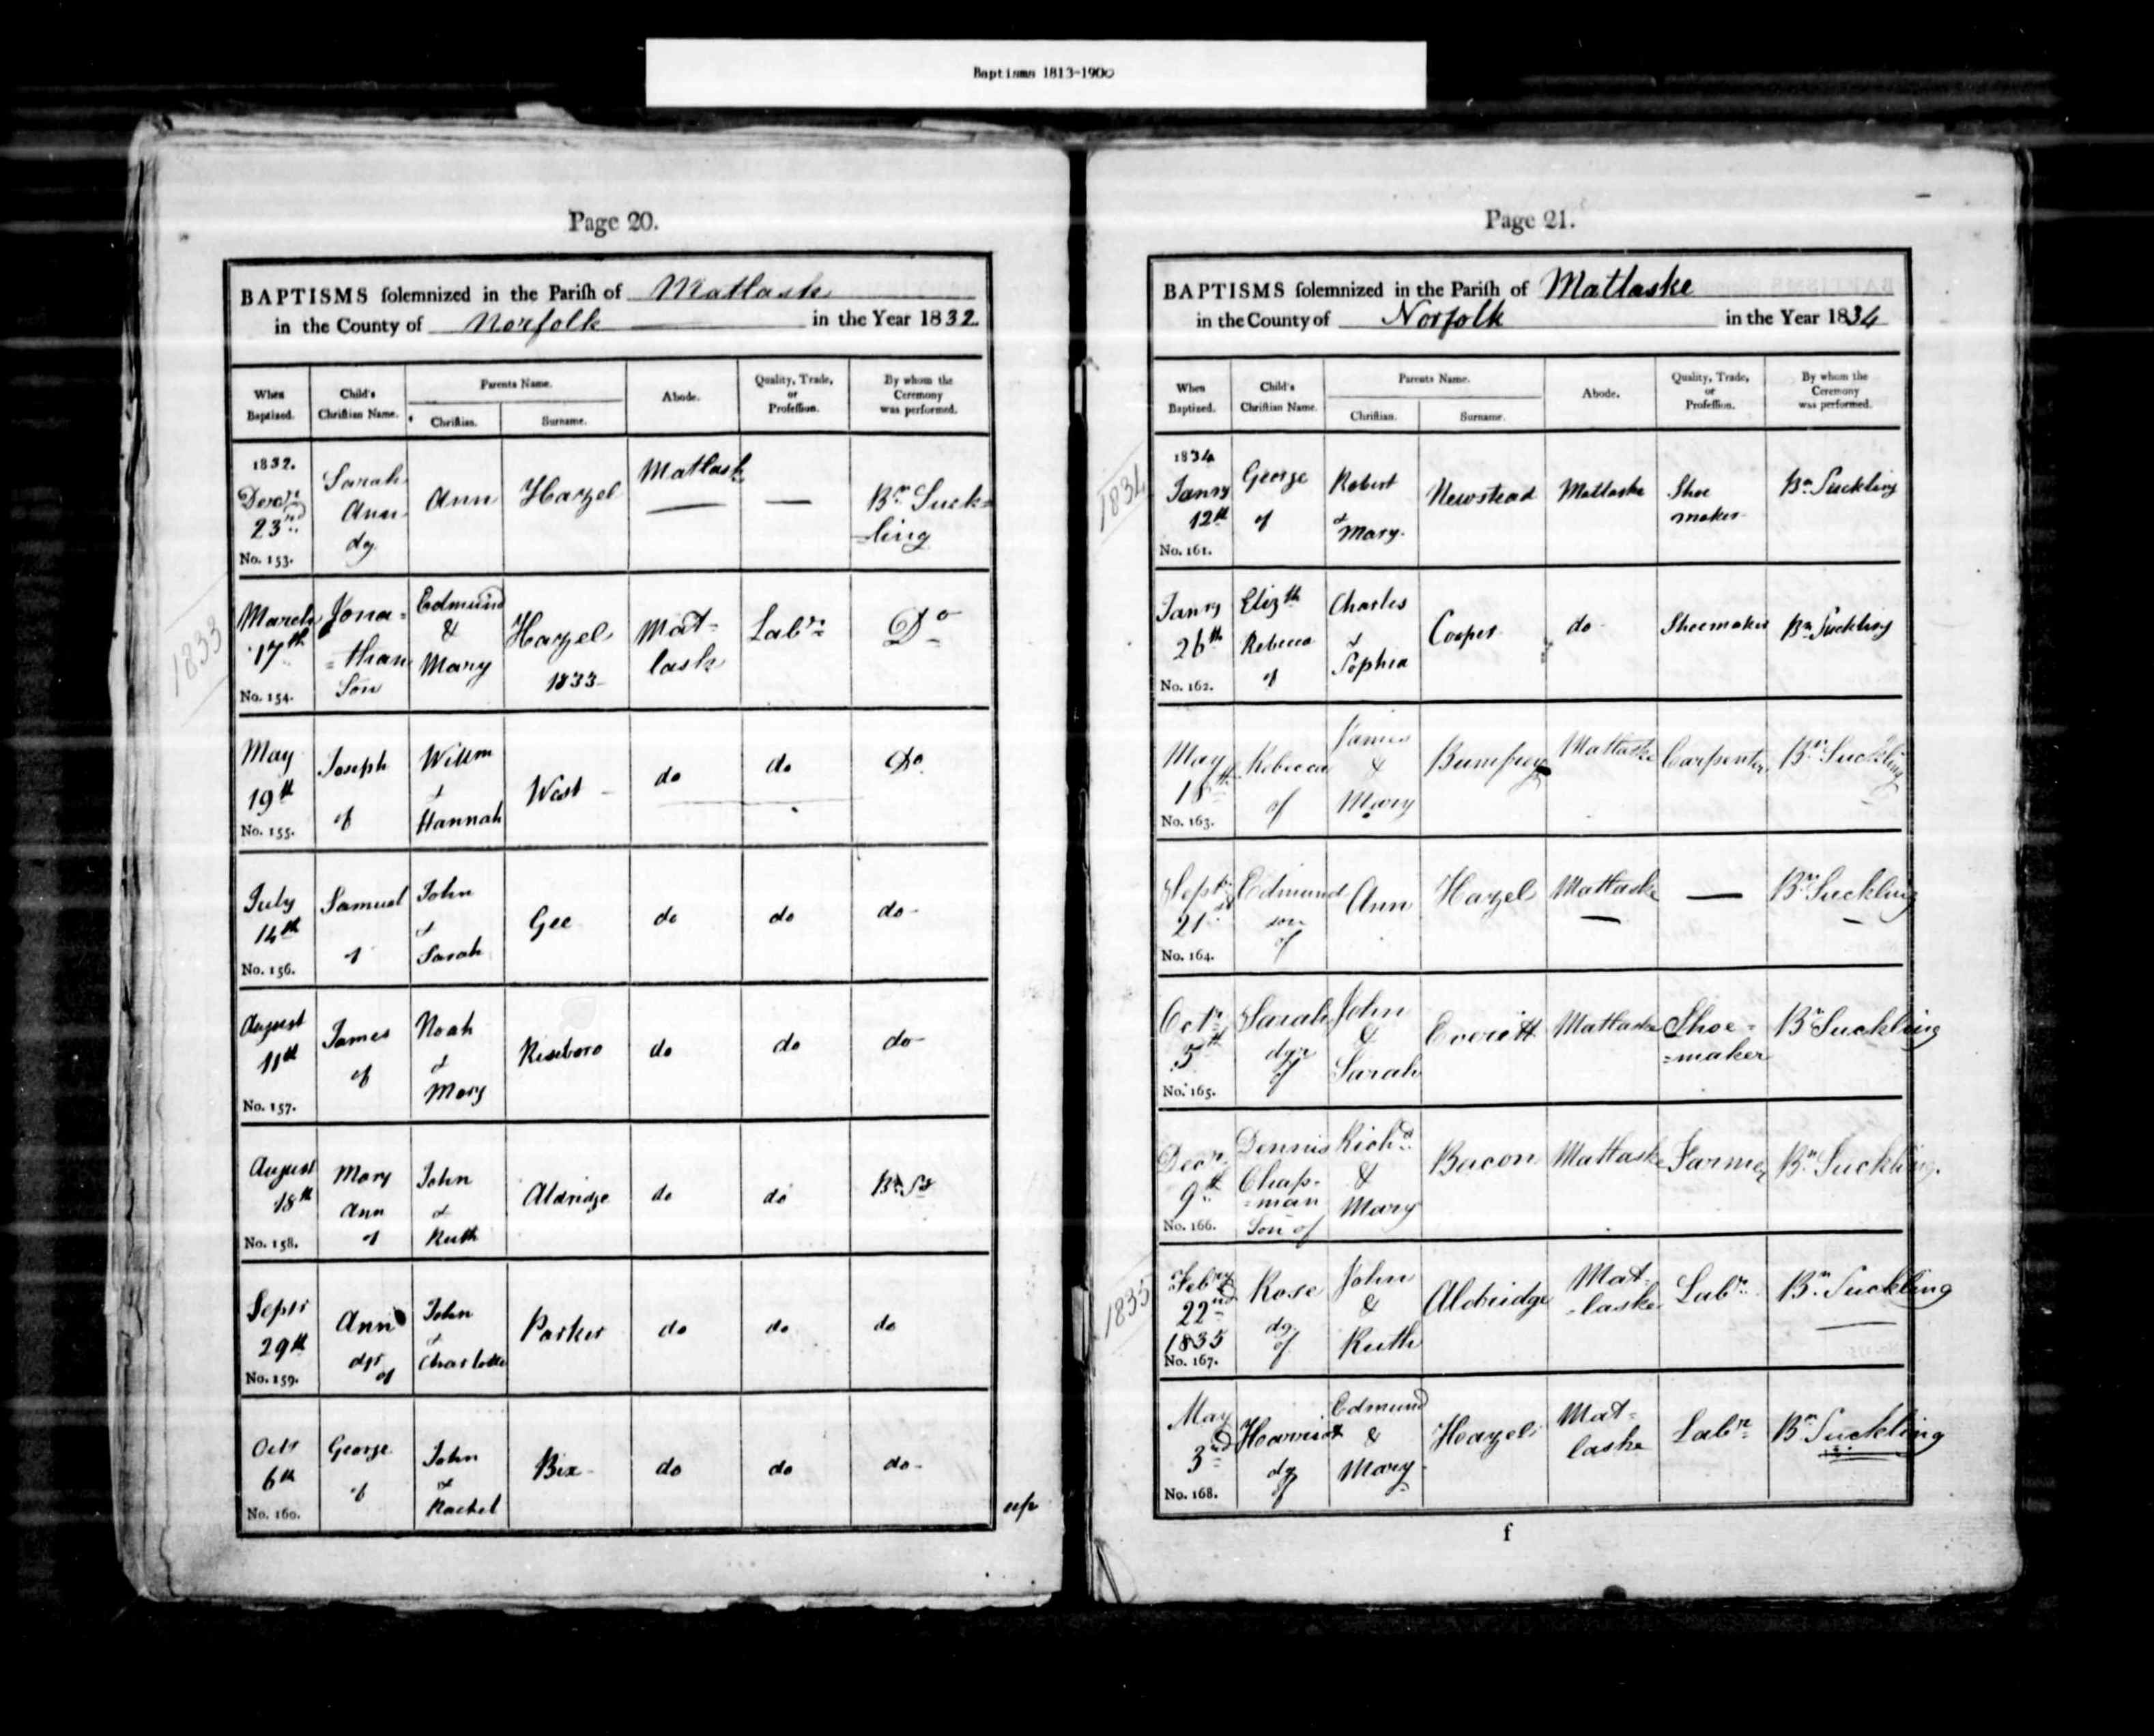 Baptisms 1813-1900
Page 20.
BAPTISMS ſolemnized in the Pariſh of Matlask
in the County of Norfolk in the Year 1832.
When Baptized.
Child's Chriſtian Name.
Parents Name.
Chriſtian.
Surname.
Abode.
Quality, Trade, or Profeſſion.
By whom the Ceremony was performed.
1832.
Decr 23rd
No. 153.
Sarah Ann dg
Ann
Hazel
Matlask
—
Bn Suck=
=ling
1833
March 17th
No. 154.
Jona=
=than
Son
Edmund & Mary
Hazel
1833
Mat=
lask
Labr
Do
May 19th
No. 155.
Joseph of
Willm & Hannah
West
do
do
Do
July 14th
No. 156.
Samuel of
John & Sarah
Gee
do
do
do
August 11th
No. 157.
James of
Noah & Mary
Riseboro
do
do
do
August 18th
No. 158.
Mary Ann of
John & Ruth
Aldridge
do
do
Bn Sg
Septr 29th
No. 159.
Ann dgr of
John & Charlotte
Parker
do
do
do
Octr 6th
No. 160.
George of
John & Rachel
Bix
do
do
do
Page 21.
BAPTISMS ſolemnized in the Pariſh of Matlaske
in the County of Norfolk in the Year 1834
When Baptized.
Child's Chriſtian Name.
Parents Name.
Chriſtian.
Surname.
Abode.
Quality, Trade, or Profeſſion.
By whom the Ceremony was performed.
1834
1834
Janry 12th
No. 161.
George of
Robert & Mary
Newstead
Matlaske
Shoe maker
Bn Suckling
Janry 26th
No. 162.
Elizth Rebecca of
Charles & Sophia
Cooper
do
Shoemaker
Bn Suckling
May 18th
No. 163.
Rebecca of
James & Mary
Bumfrey
Matlaske
Carpenter
Bn Suckling
Septr 21st
No. 164.
Edmund son of
Ann
Hazel
Matlaske
—
Bn Suckling
Octr 5th
No. 165.
Sarah dgr of
John & Sarah
Everitt
Matlaske
Shoe=
=maker
Bn Suckling
Decr 9th
No. 166.
Dennis Chap=
=man
Son of
Richd & Mary
Bacon
Matlaske
Farmer
Bn Suckling.
1835
Febry 22nd 1835
No. 167.
Rose dg of
John & Ruth
Aldridge
Mat=
=laske
Labr
Bn Suckling
May 3rd
No. 168.
Harriot dg of
Edmund & Mary
Hazel
Mat=
laske
Labr
Bn Suckling
f